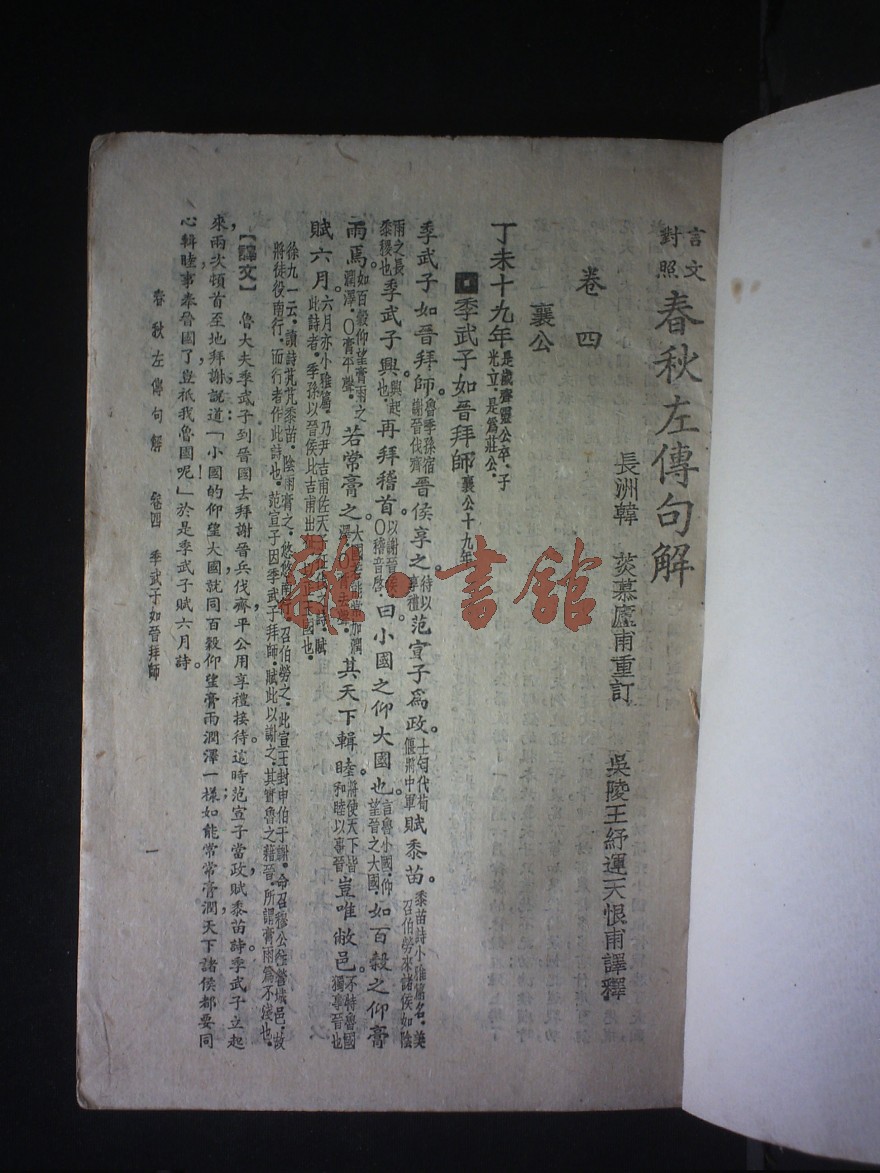 言文對照 春秋左傳句解
長洲韓 菼慕廬甫重訂 吳陵王紓運天恨甫譯釋
卷四
襄公
丁未十九年 是歲齊靈公卒．子光立．是爲莊公．
季武子如晉拜師 襄公十九年
季武子如晉拜師。魯季孫宿謝晉伐齊 晉侯享之。待以享禮 范宣子爲政。士匄代荀偃將中軍 賦黍苗。黍苗詩小雅篇名．美召伯勞來諸侯如陰
雨之長黍稷也 季武子興。興起也． 再拜稽首。以謝晉侯〇稽音啓． 曰小國之仰大國也。言魯小國．仰望晉之大國． 如百穀之仰膏
雨焉。如百穀仰望膏雨之潤澤．〇膏平聲． 若常膏之。大國若能常加潤澤．〇膏去聲． 其天下輯睦。將使天下皆和睦以事晉 豈唯敝邑。不特魯國獨事晉也
賦六月。六月亦小雅篇．乃尹吉甫佐天子征伐之詩．賦此詩者．季孫以晉侯比吉甫出征以匡王國也．
徐九一云．讀詩芃芃黍苗．陰雨膏之．悠悠南行．召伯勞之．此宣王封申伯于謝．命召穆公往營城邑．故
將徒役南行．而行者作此詩也．范宣子因季武子拜師．賦此以謝之．其實魯之藉晉．所謂膏雨爲不淺也．
【譯文】 魯大夫季武子到晉國去拜謝晉兵伐齊，平公用享禮接待，這時范宣子當政，賦黍苗詩。季武子立起
來，兩次頓首至地拜謝，說道：「小國的仰望大國，就同百穀仰望膏雨潤澤一樣；如能常常膏潤，天下諸侯都要同
心輯睦事奉晉國了，豈祗我魯國呢！」於是季武子賦六月詩。
春秋左傳句解 卷四 季武子如晉拜師 一
書館